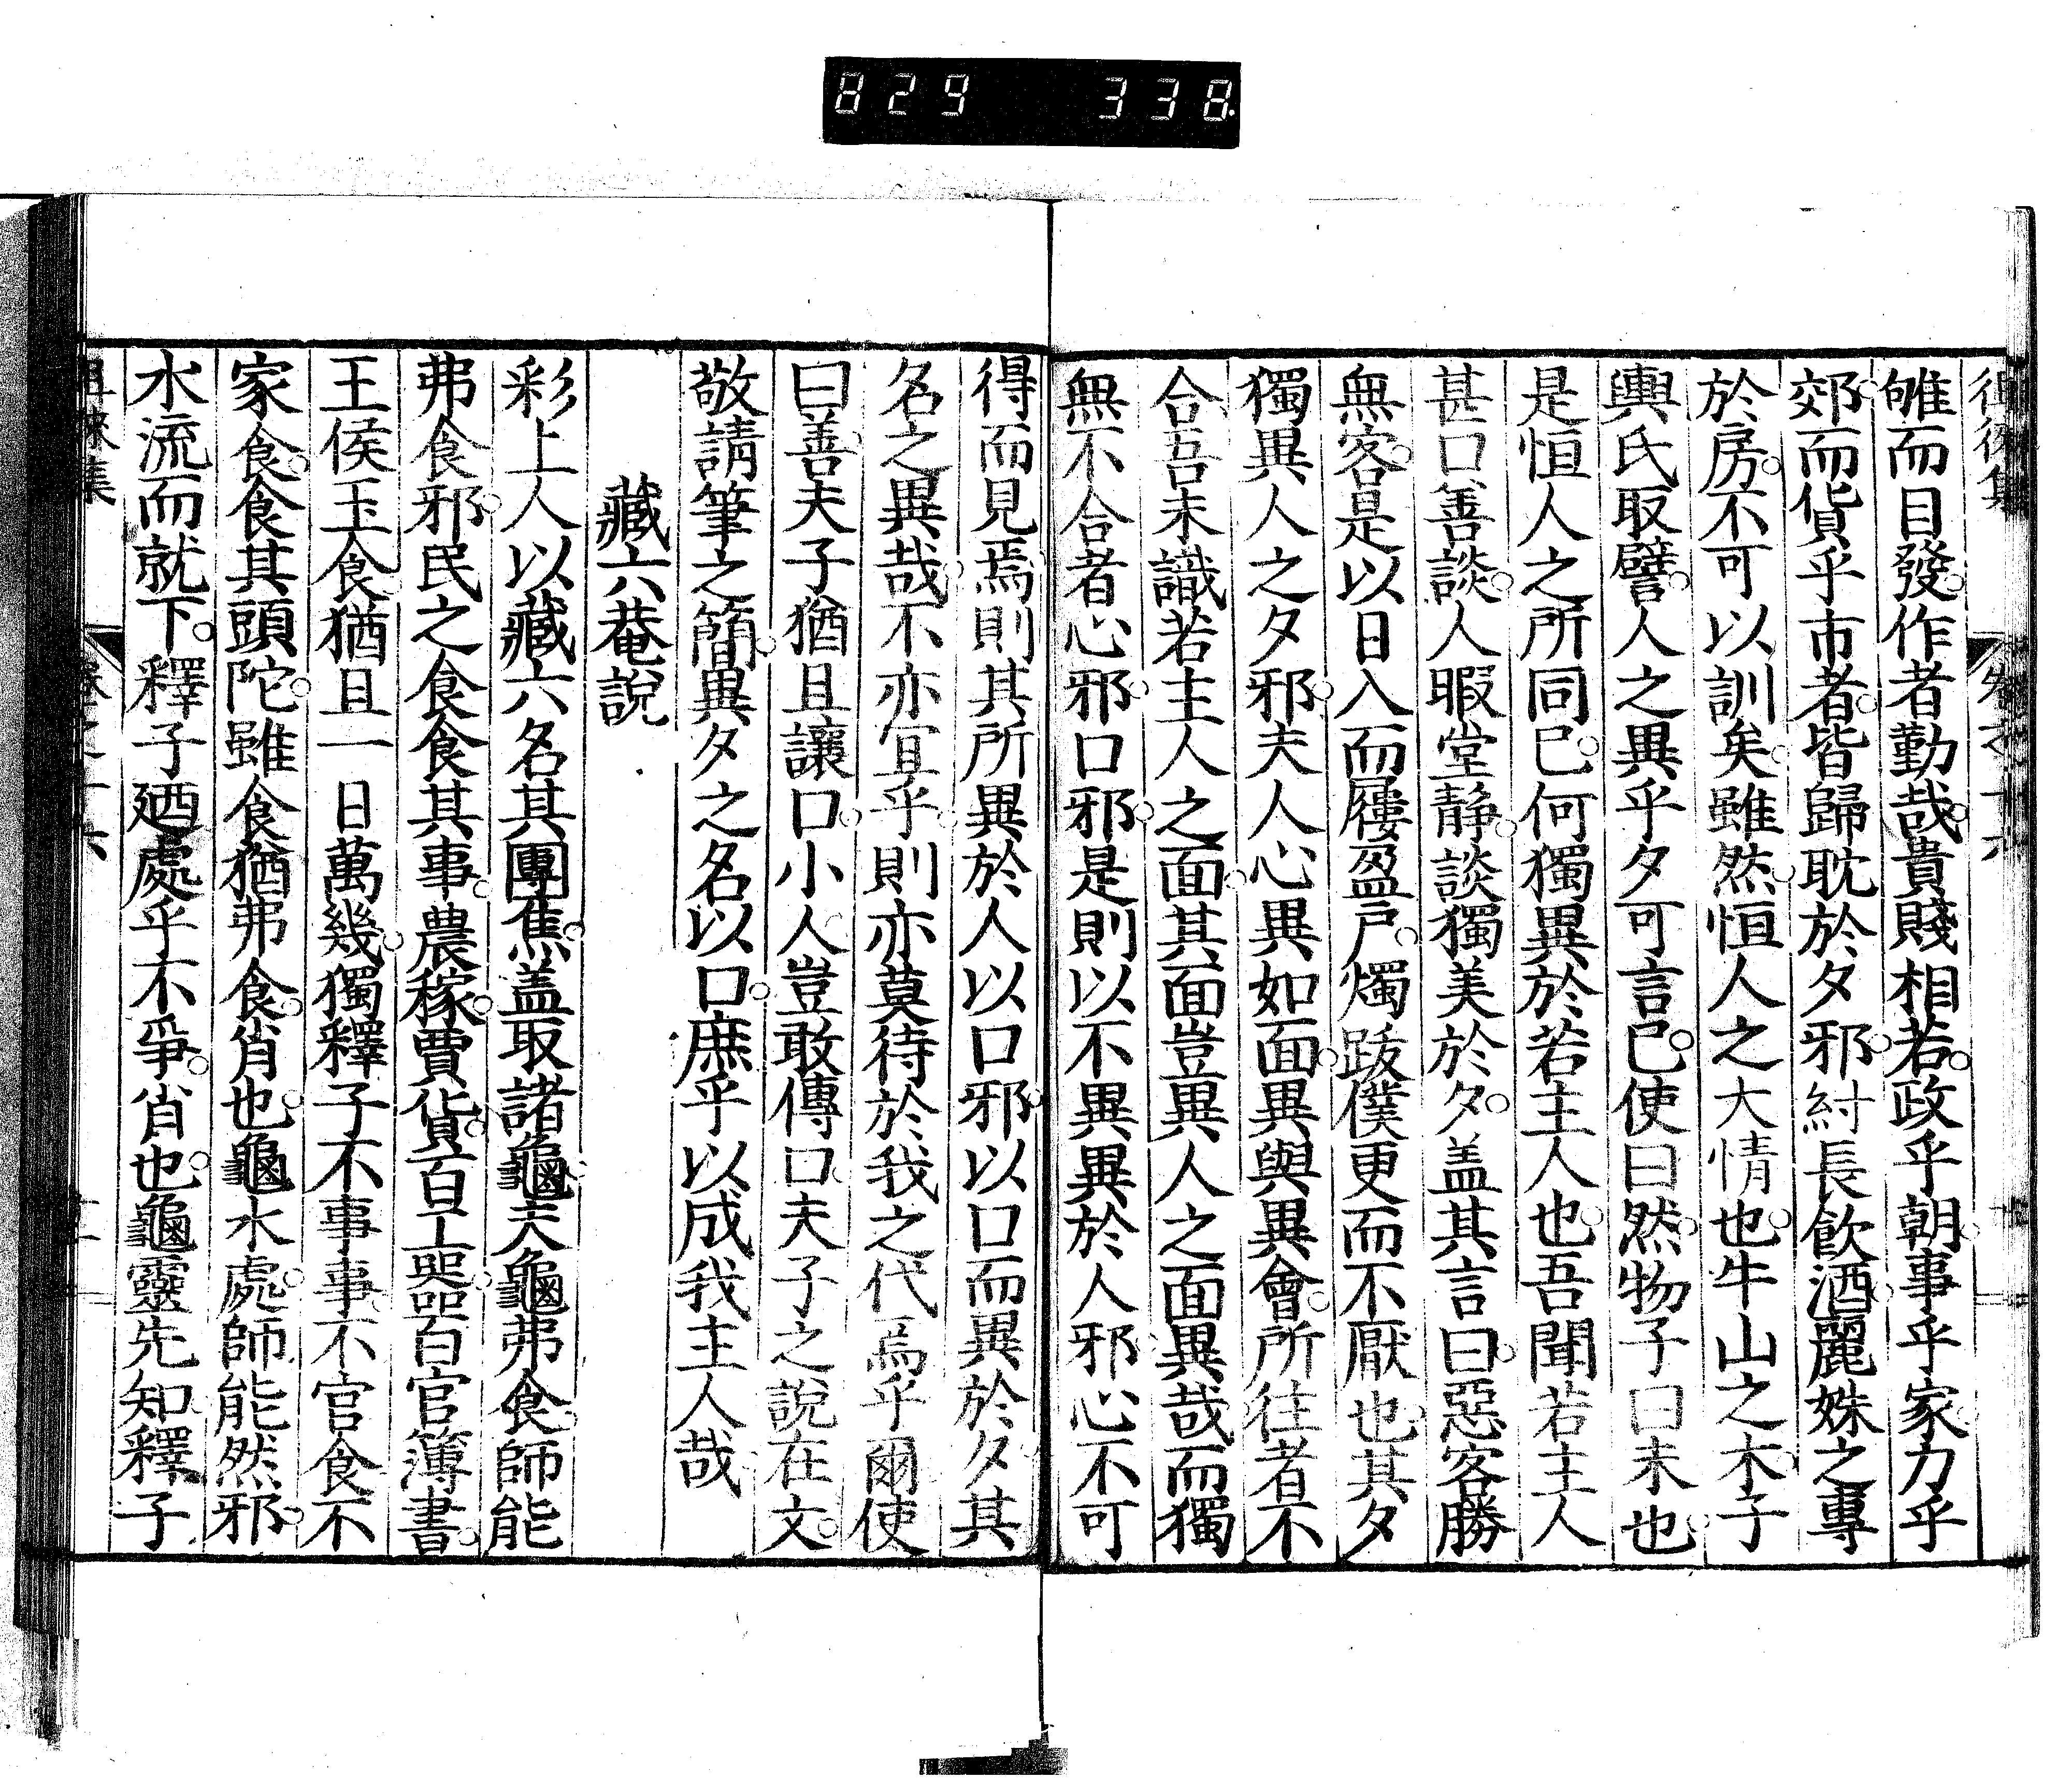 829 338
雎而目發。作者勤哉。貴賤相若。政乎朝。事乎家。力乎
郊。而貨乎市者。皆歸耽於夕邪。紂長飲酒。麗姝之專
於房。不可以訓矣。雖然。恒人之大情也。牛山之木。子
輿氏取譬。人之異乎夕可言已。使曰然。物子曰未也。
是恒人之所同已。何獨異於若主人也。吾聞若主人
甚口善談。人暇堂静。談獨美於夕。盖其言曰。惡客勝
無客。是以日入而屨盈戶。燭跋僕更而不厭也。其夕
獨異人之夕邪。夫人心異如面。異與異會。所往者不
合。吾未識若主人之面。其面豈異人之面異哉。而獨
無不合者。心邪。口邪。是則以不異異於人邪。心不可
得而見焉。則其所異於人以口邪。以口而異於夕。其
名之異哉。不亦宜乎。則亦莫待於我之代焉乎爾。使
曰善。夫子猶且讓口。小人豈敢傳口。夫子之說在文。
敬請筆之簡。異夕之名以口。庶乎以成我主人哉。
藏六菴說
彩上人以藏六名其團焦。盖取諸龜。夫龜弗食。師能
弗食邪。民之食食其事。農稼。賈貨。百工器。百官簿書。
王侯玉食。猶且一日萬幾。獨釋子不事事。不官食。不
家食。食其頭陀。雖食猶弗食。肖也。龜水處。師能然邪。
水流而就下。釋子廼處乎不爭。肖也。龜靈先知。釋子
徂徠集 卷之十六